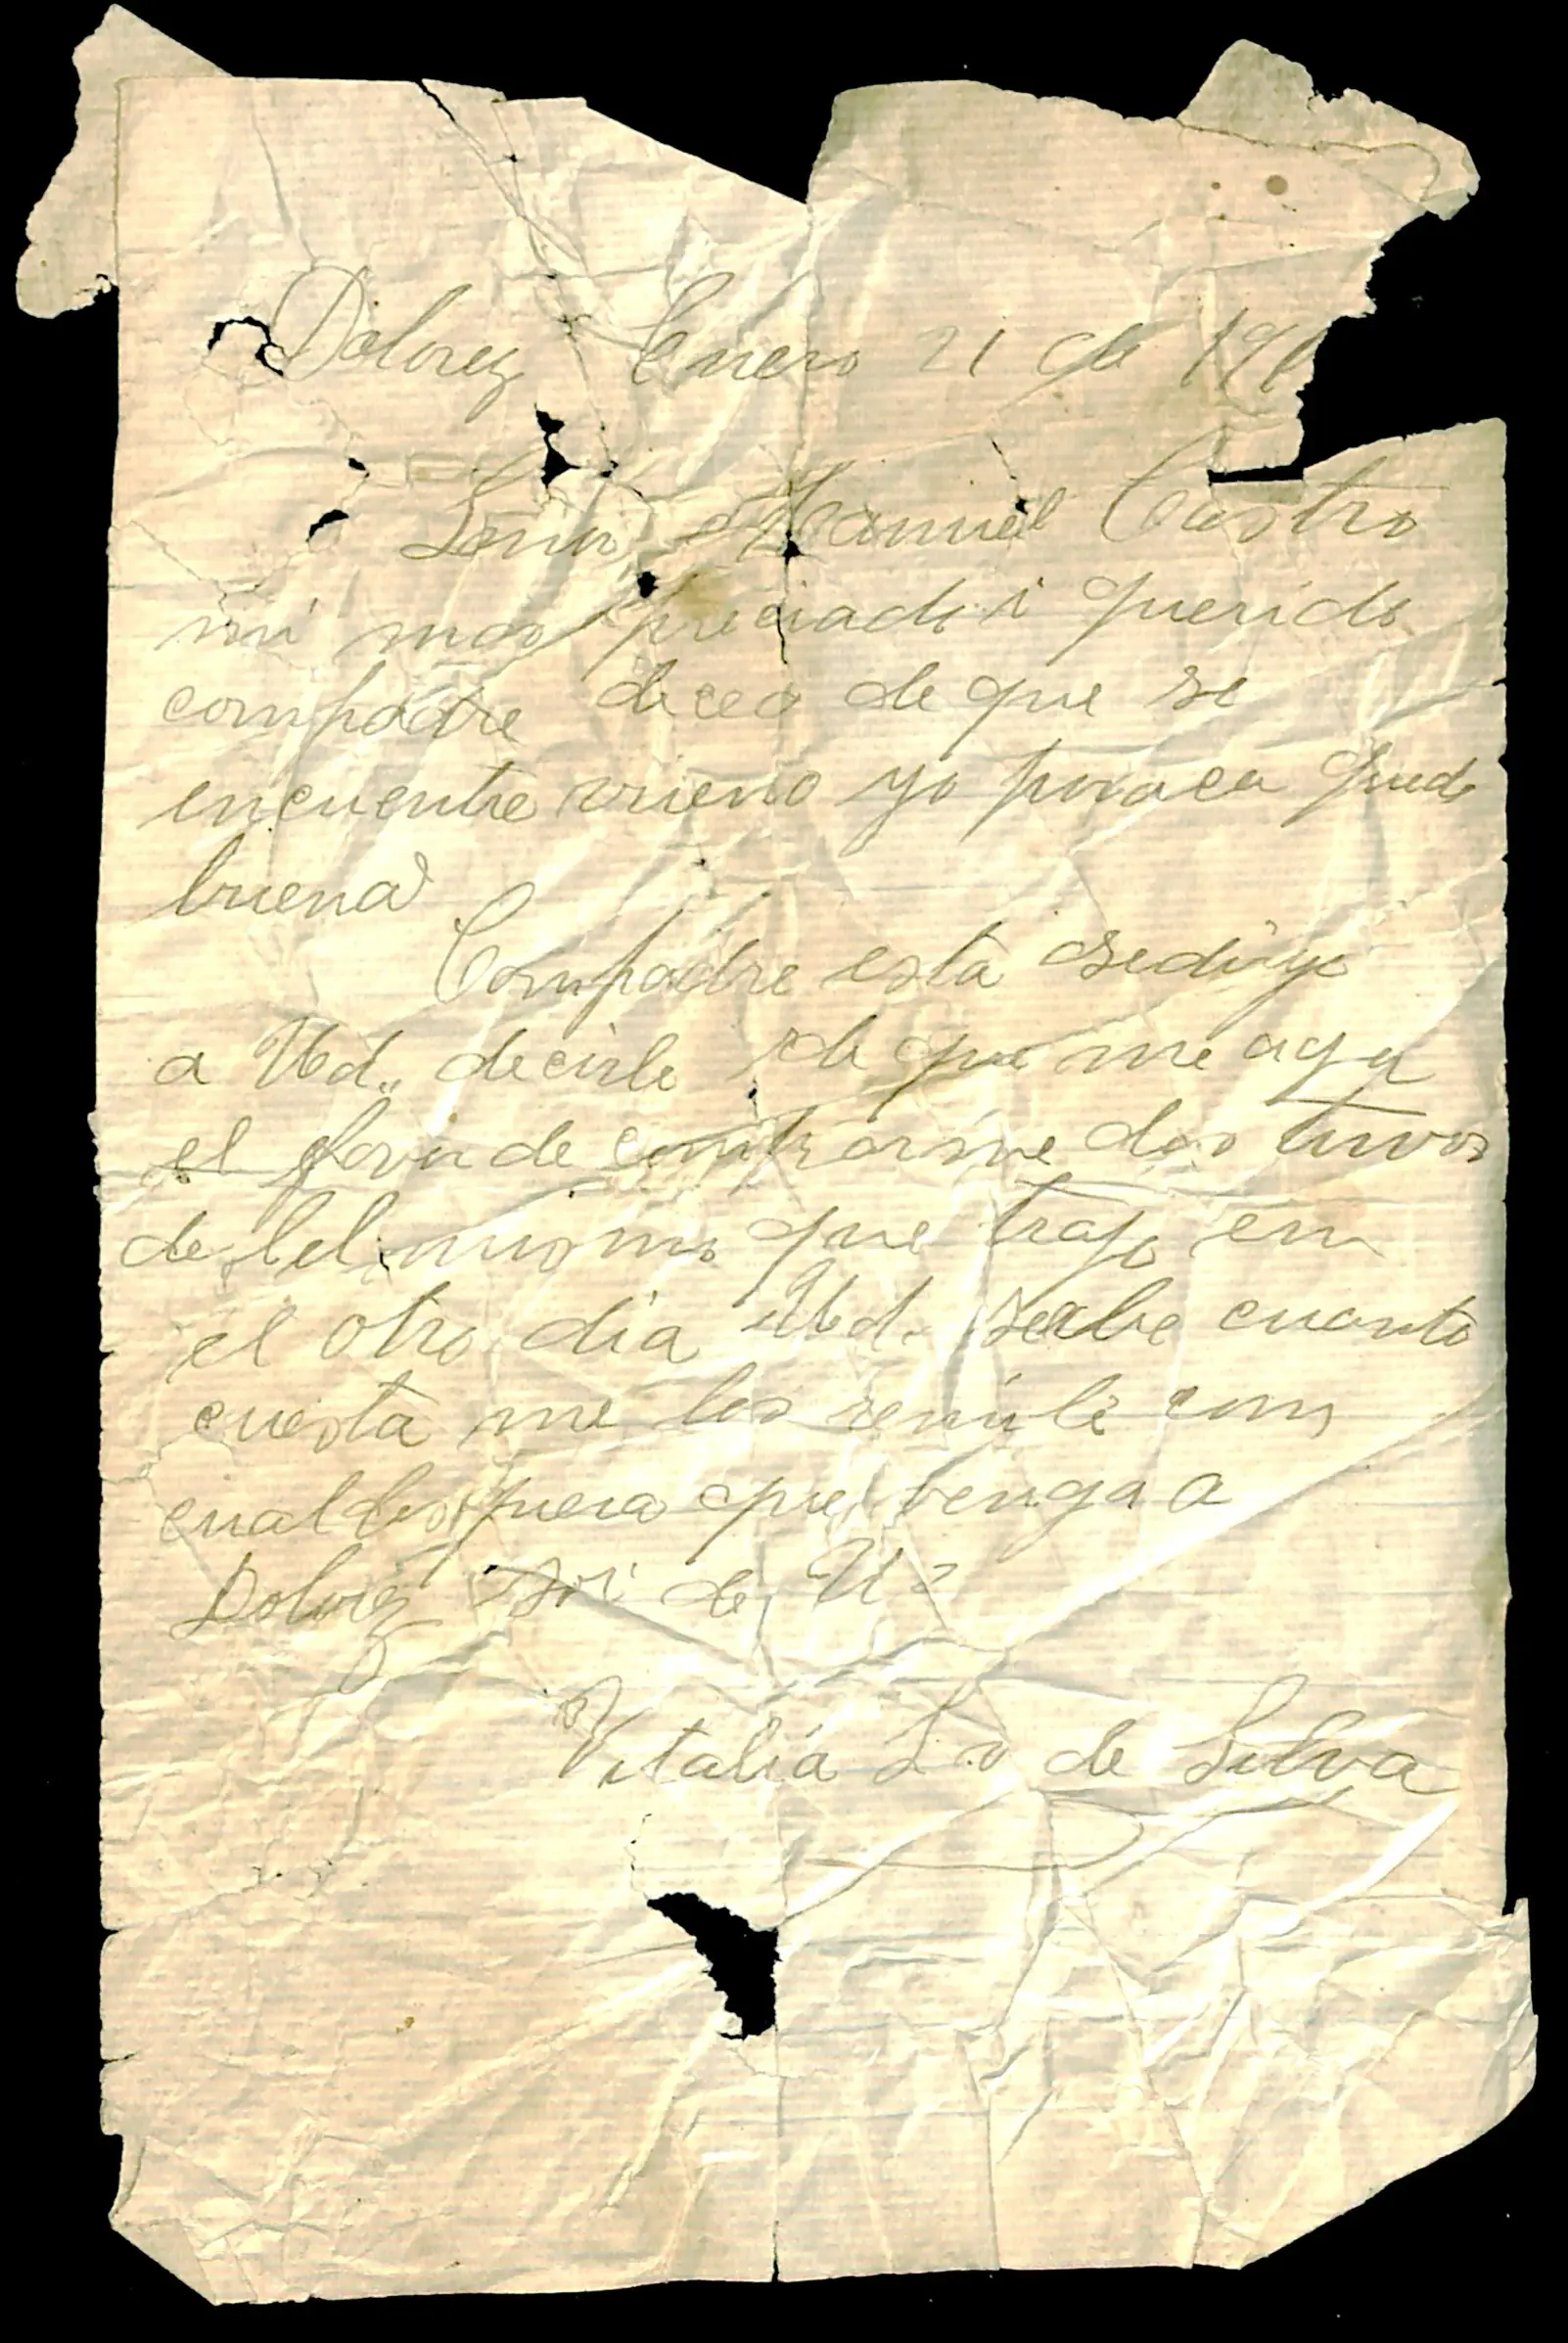 Dolorez Enero 21 de 19
Senor Manuel Castro
mi mas preciado i querido
compadre deceo de que se
encuentre vueno yo poraca quedo
buena
Compadre esta sedirije
a Ud. decirle de que me aga
el favor de comprarme dos tivos
de lel mismo que trajo en
el otro dia Ud. sabe cuanto
cuesta me los remite con
cual des quiera que venga a
Dolorez soi de U
Vitalia L. de Silva